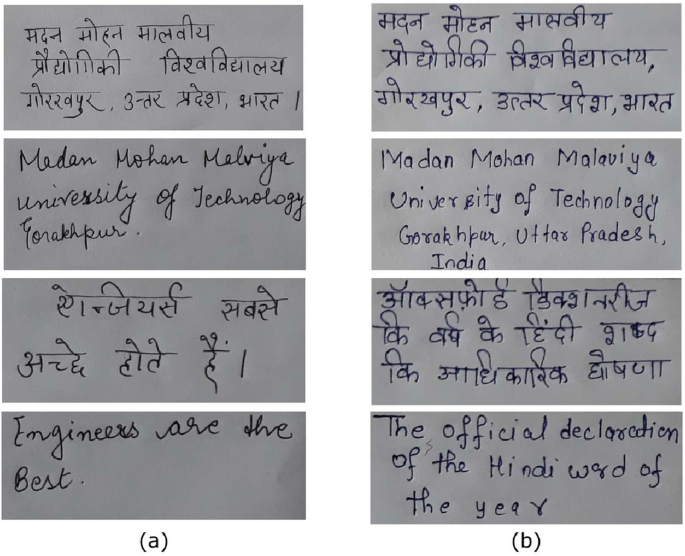 मदन मोहन मालवीय
प्रौद्योगिकी विश्वविद्यालय
गोरखपुर, उत्तर प्रदेश, भारत ।
Madan Mohan Malviya
university of Technology
Gorakhpur.
सबसे
अच्छे होते हैं ।
Engineers are the
Best.
(a)
मदन मोहन मालवीय
प्रोद्योगिकी विश्वविद्यालय,
गोरखपुर, उत्तर प्रदेश, भारत
Madan Mohan Malaviya
University of Technology
Gorakhpur, Uttar Pradesh,
India
ऑक्सफ़ोर्ड डिक्शनरीज
कि वर्ष के हिंदी शब्द
कि आधिकारिक घोषणा
The official declaration
of the Hindi word of
the year
(b)